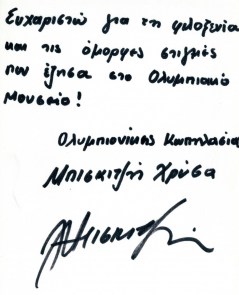 Ευχαριστώ για τη φιλοξενία
και τις όμορφες στιγμές
που έζησα στο Ολυμπιακό
Μουσείο!
Ολυμπιονίκης Κωπηλασίας
Μπισκιτζή Χρύσα